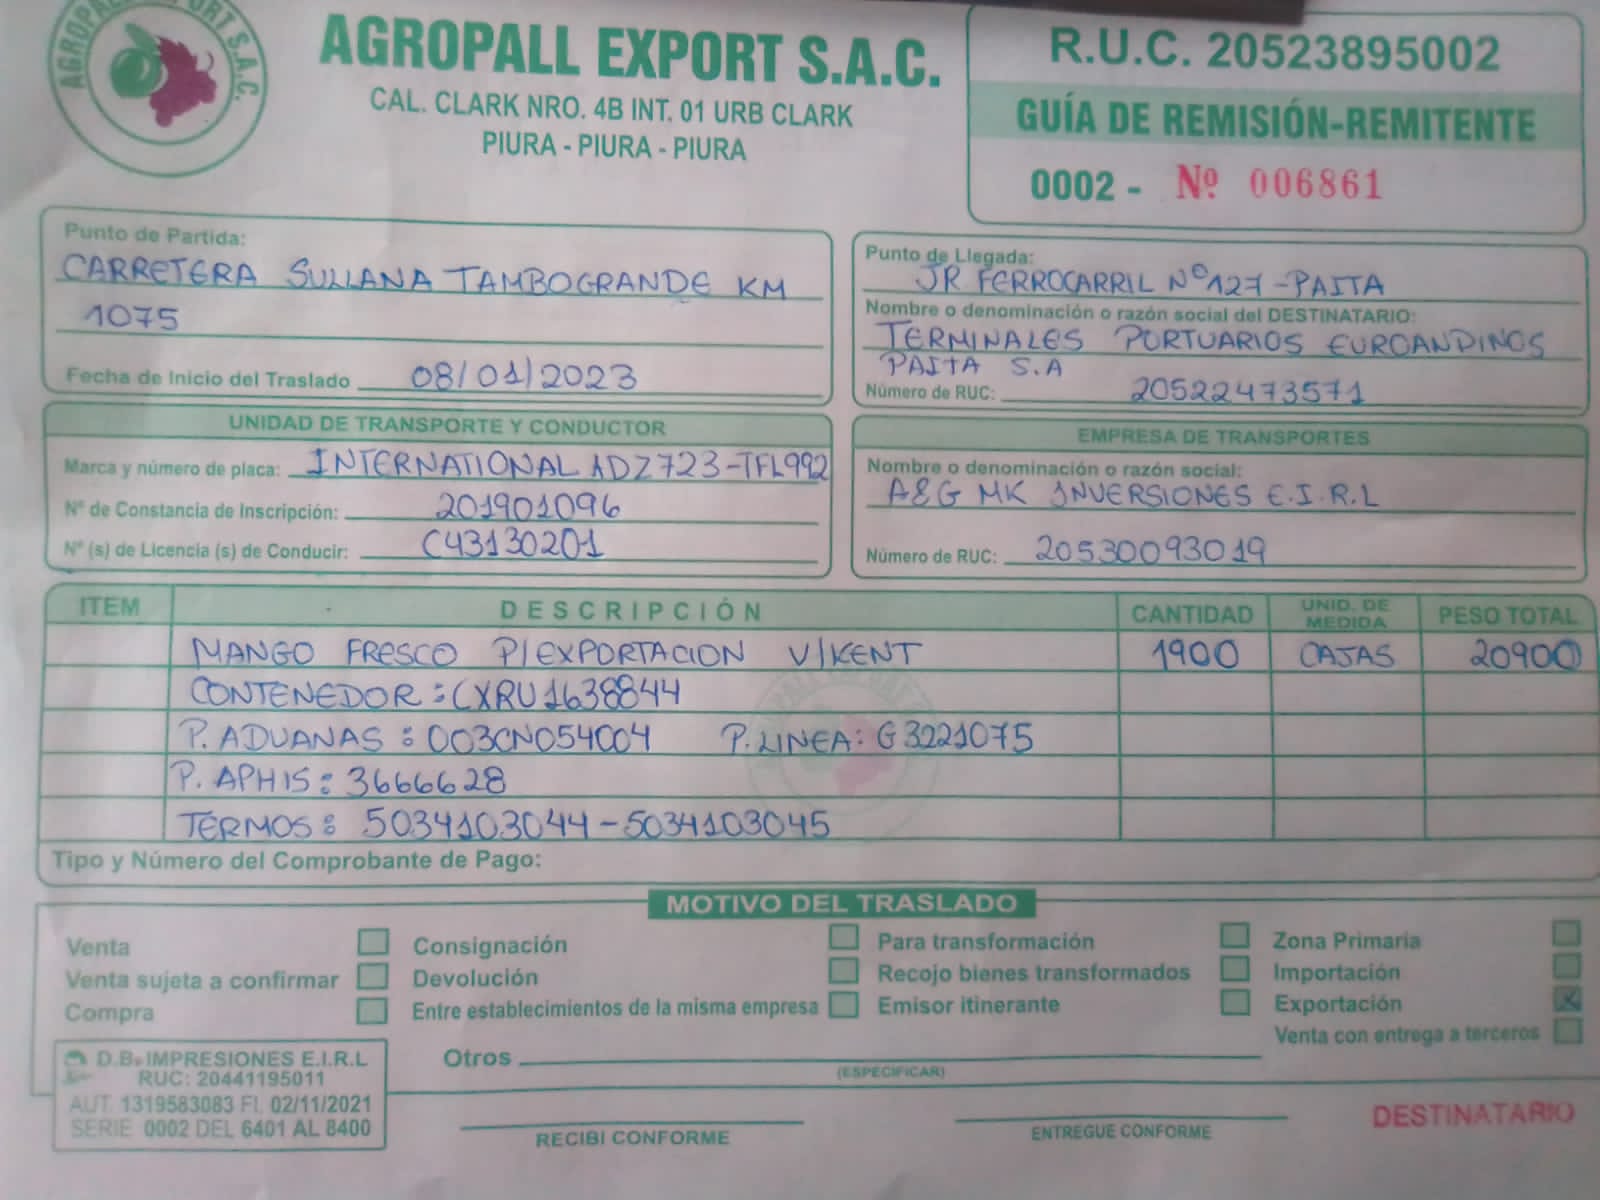 AGROPALL EXPORT S.A.C.
AGROPALL EXPORT S.A.C.
CAL. CLARK NRO. 4B INT. 01 URB CLARK
PIURA - PIURA - PIURA
R.U.C. 20523895002
GUÍA DE REMISIÓN-REMITENTE
0002 - Nº 006861
Punto de Partida:
CARRETERA SULLANA TAMBOGRANDE KM
1075
Fecha de Inicio del Traslado 08/01/2023
Punto de Llegada:
JR FERROCARRIL Nº 127 - PAITA
Nombre o denominación o razón social del DESTINATARIO:
TERMINALES PORTUARIOS EUROANDINOS
PAITA S.A
Número de RUC: 20522473571
UNIDAD DE TRANSPORTE Y CONDUCTOR
Marca y número de placa: INTERNATIONAL ADZ723-TFL992
Nº de Constancia de Inscripción: 201901096
Nº (s) de Licencia (s) de Conducir: C43130201
EMPRESA DE TRANSPORTES
Nombre o denominación o razón social:
A&G MK INVERSIONES E.I.R.L
Número de RUC: 20530093019
ITEM DESCRIPCIÓN CANTIDAD UNID. DE MEDIDA PESO TOTAL
MANGO FRESCO P/EXPORTACION V/KENT 1900 CAJAS 20900
CONTENEDOR: CXRU1638844
P. ADUANAS: 003CN054004 P. LINEA: G3221075
P. APHIS: 3666628
TERMOS: 5034103044-5034103045
Tipo y Número del Comprobante de Pago:
MOTIVO DEL TRASLADO
Venta Consignación Para transformación Zona Primaria
Venta sujeta a confirmar Devolución Recojo bienes transformados Importación
Compra Entre establecimientos de la misma empresa Emisor itinerante Exportación X
Venta con entrega a terceros
Otros
(ESPECIFICAR)
D.B. IMPRESIONES E.I.R.L
RUC: 20441195011
AUT. 1319583083 FI. 02/11/2021
SERIE 0002 DEL 6401 AL 8400
RECIBI CONFORME
ENTREGUE CONFORME
DESTINATARIO